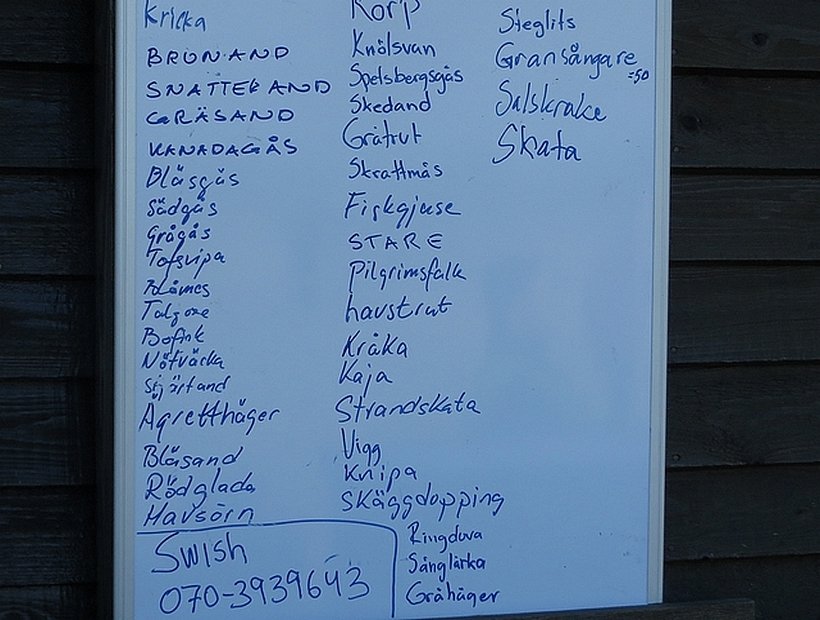 Kricka
BRUNAND
SNATTERAND
GRÄSAND
KANADAGÅS
Bläsgås
Sädgås
Grågås
Tofsvipa
Blåmes
Talgoxe
Bofink
Nötväcka
Stjärtand
Ägretthäger
Bläsand
Rödglada
Havsörn
Swish
070-3939643
Korp
Knölsvan
Spetsbergsgås
Skedand
Gråtrut
Skrattmås
Fiskgjuse
STARE
Pilgrimsfalk
havstrut
Kråka
Kaja
Strandskata
Vigg
Knipa
Skäggdopping
Ringduva
Sånglärka
Gråhäger
Steglits
Gransångare
=50
Salskrake
Skata